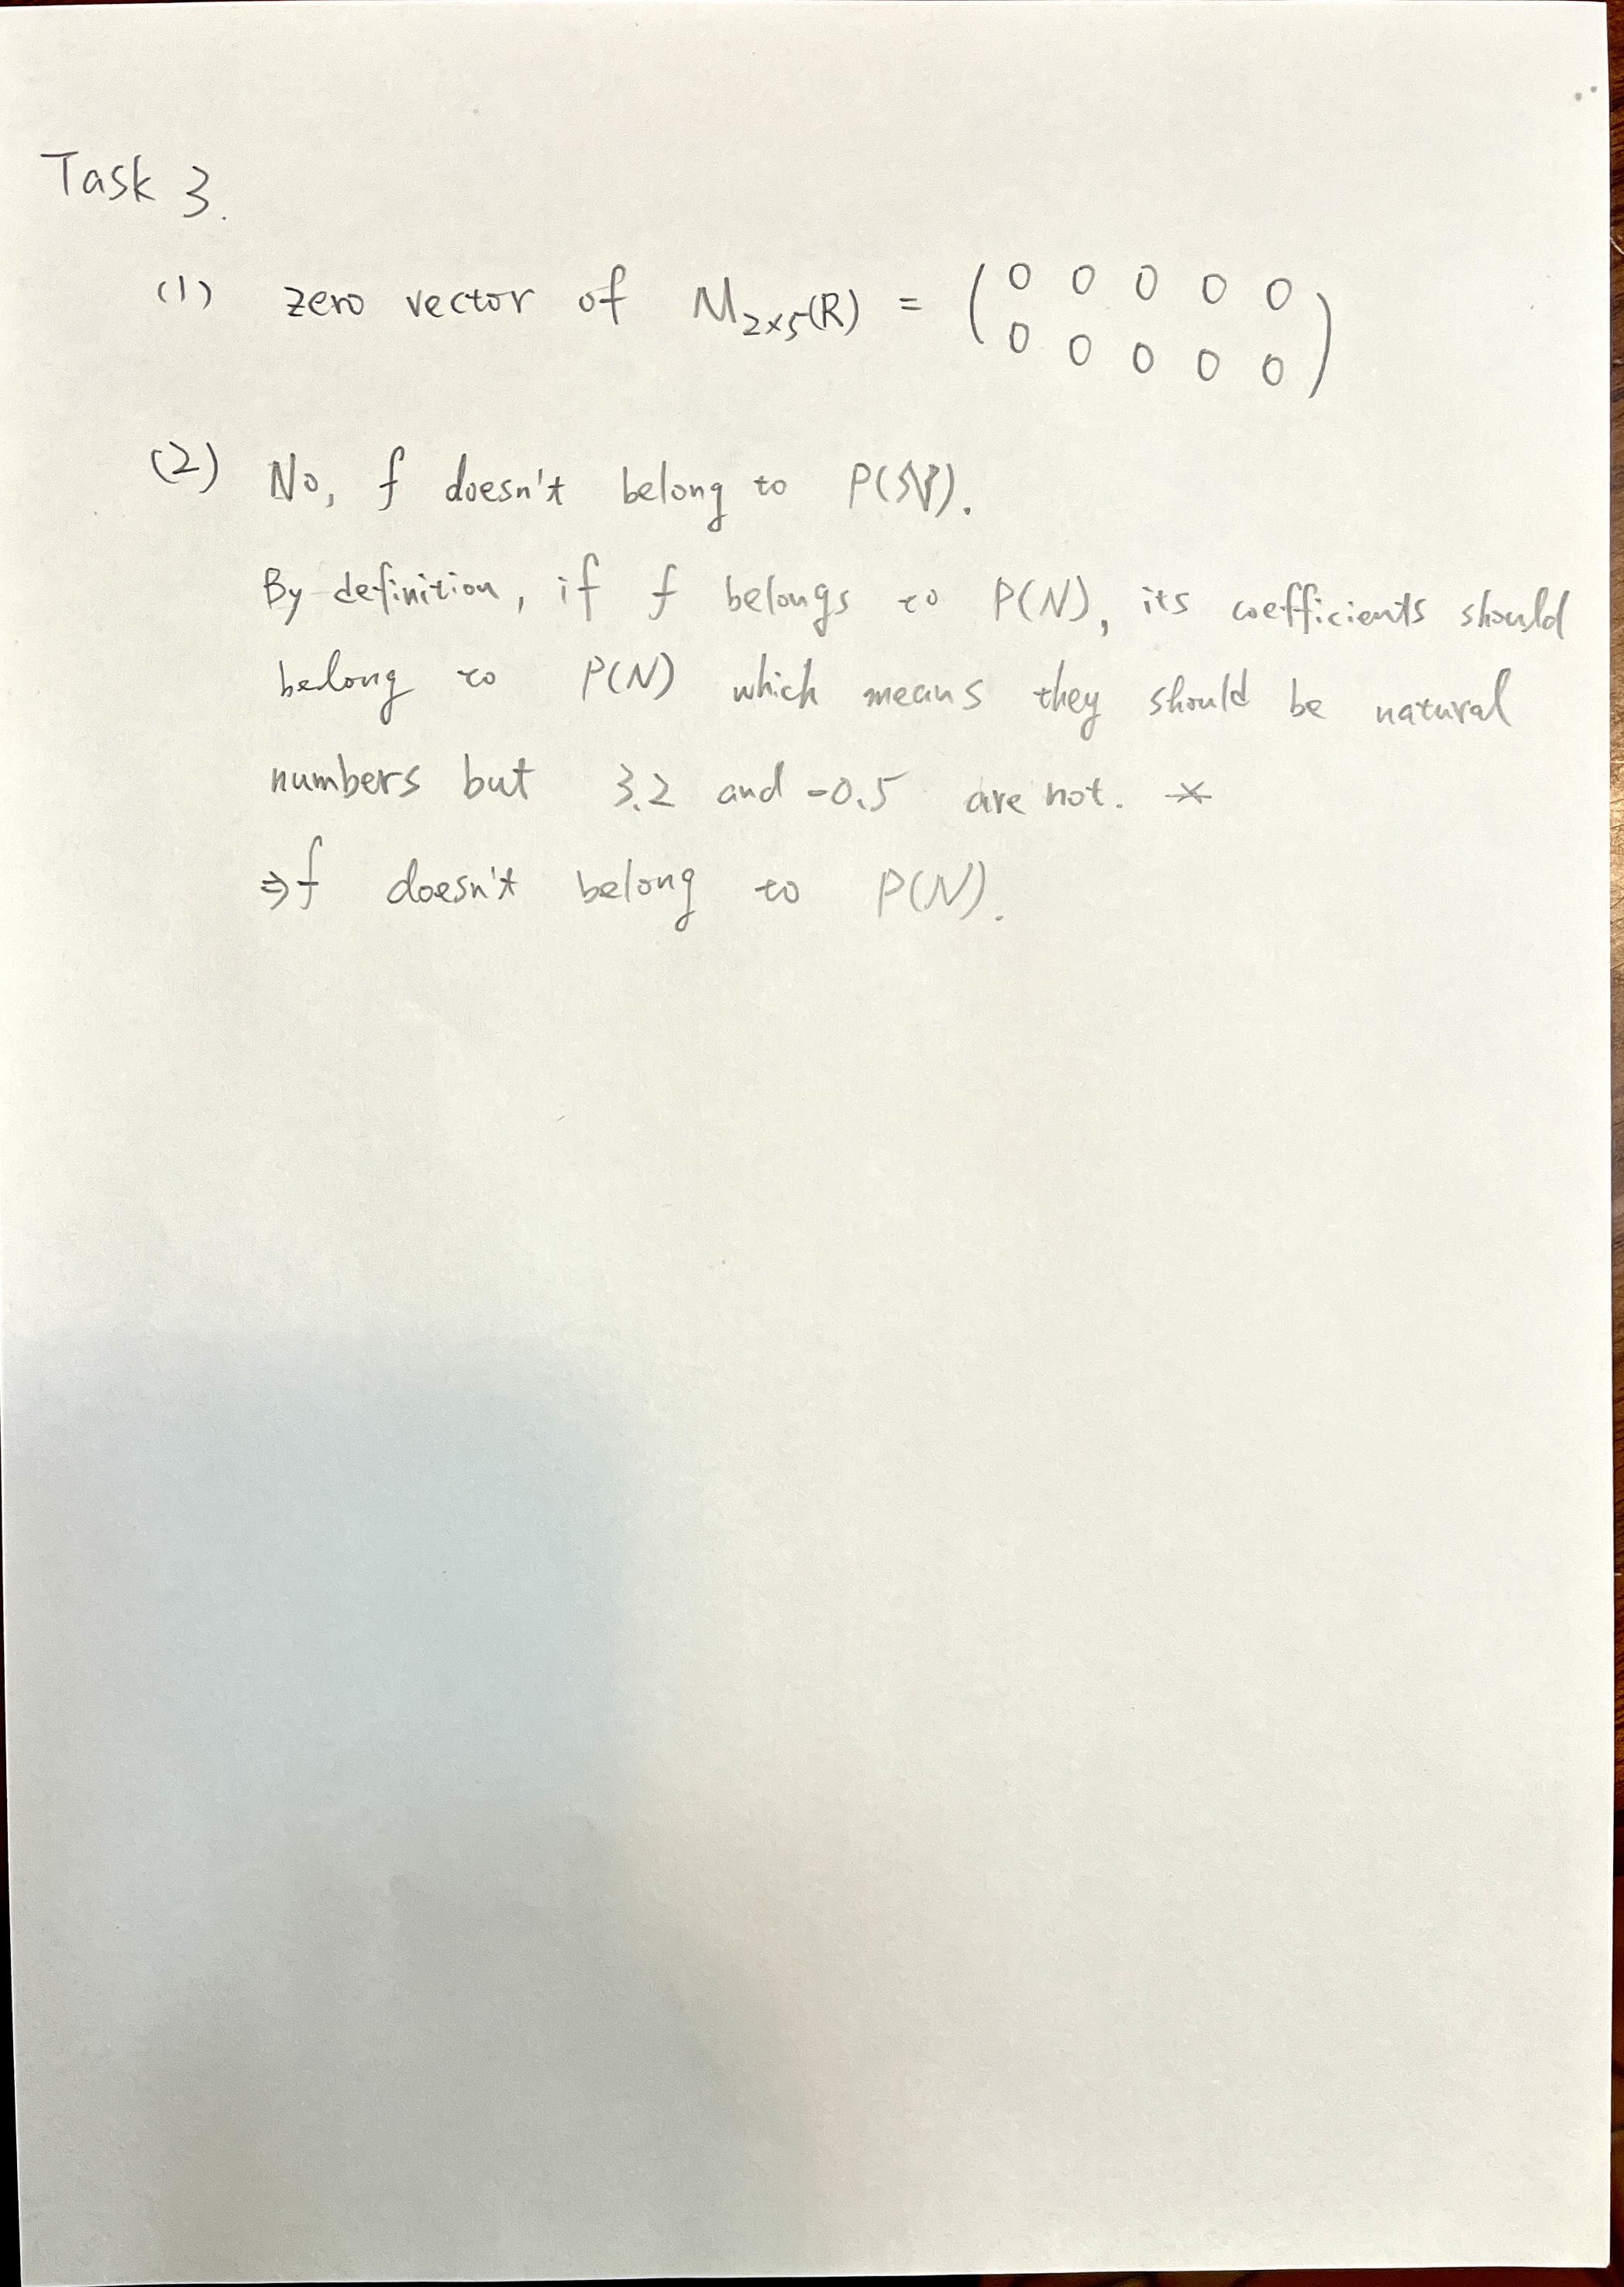 Task 3.
(1) zero vector of M₂ₓ₅(R) = (0 0 0 0 0
0 0 0 0 0)
(2) No, f doesn't belong to P(N).
By definition, if f belongs to P(N), its coefficients should
belong to P(N) which means they should be natural
numbers but 3.2 and -0.5 are not. ※
⇒ f doesn't belong to P(N).